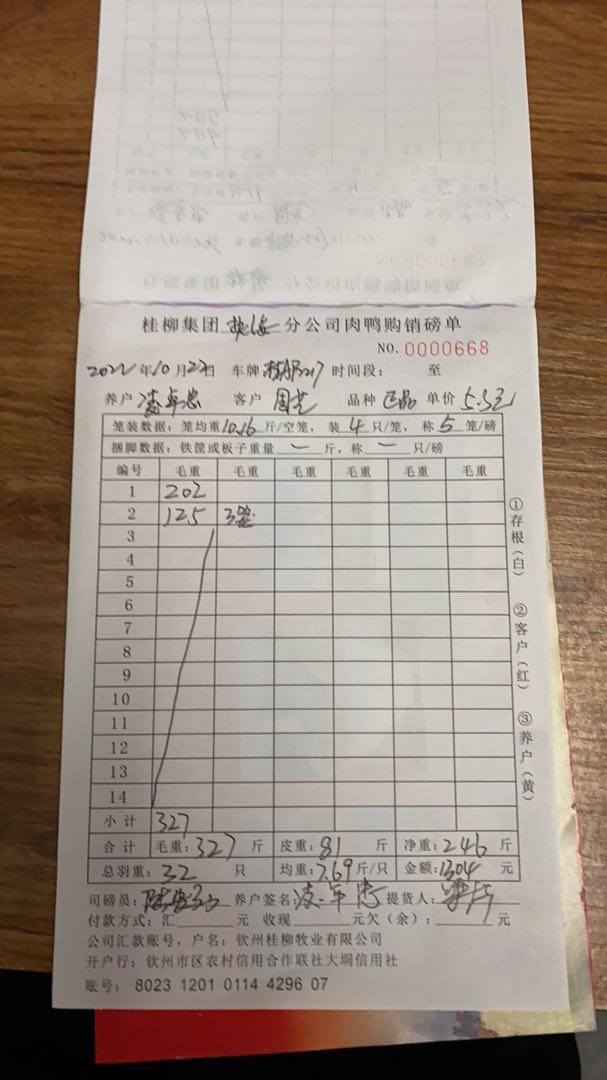 桂柳集团 分公司肉鸭购销磅单
NO. 0000668
2022年10月27日 车牌 时间段： 至
养户 凌卓忠 客户 品种 正品 单价 5.3元
笼装数据：笼均重10.16斤/空笼，装4只/笼，称5笼/磅
捆脚数据：铁筐或板子重量 一 斤，称 一 只/磅
编号 毛重 毛重 毛重 毛重 毛重 毛重
1 202
2 125 3笼
3
4
5
6
7
8
9
10
11
12
13
14
小计 327
合计 毛重：327斤 皮重：81斤 净重：246斤
总羽重：32只 均重：7.69斤/只 金额：1304元
司磅员： 养户签名： 提货人：
付款方式：汇 元 收现 元欠（余）： 元
公司汇款账号，户名：钦州桂柳牧业有限公司
开户行：钦州市区农村信用合作联社大垌信用社
账号： 8023 1201 0114 4296 07
①存根（白）
②客户（红）
③养户（黄）